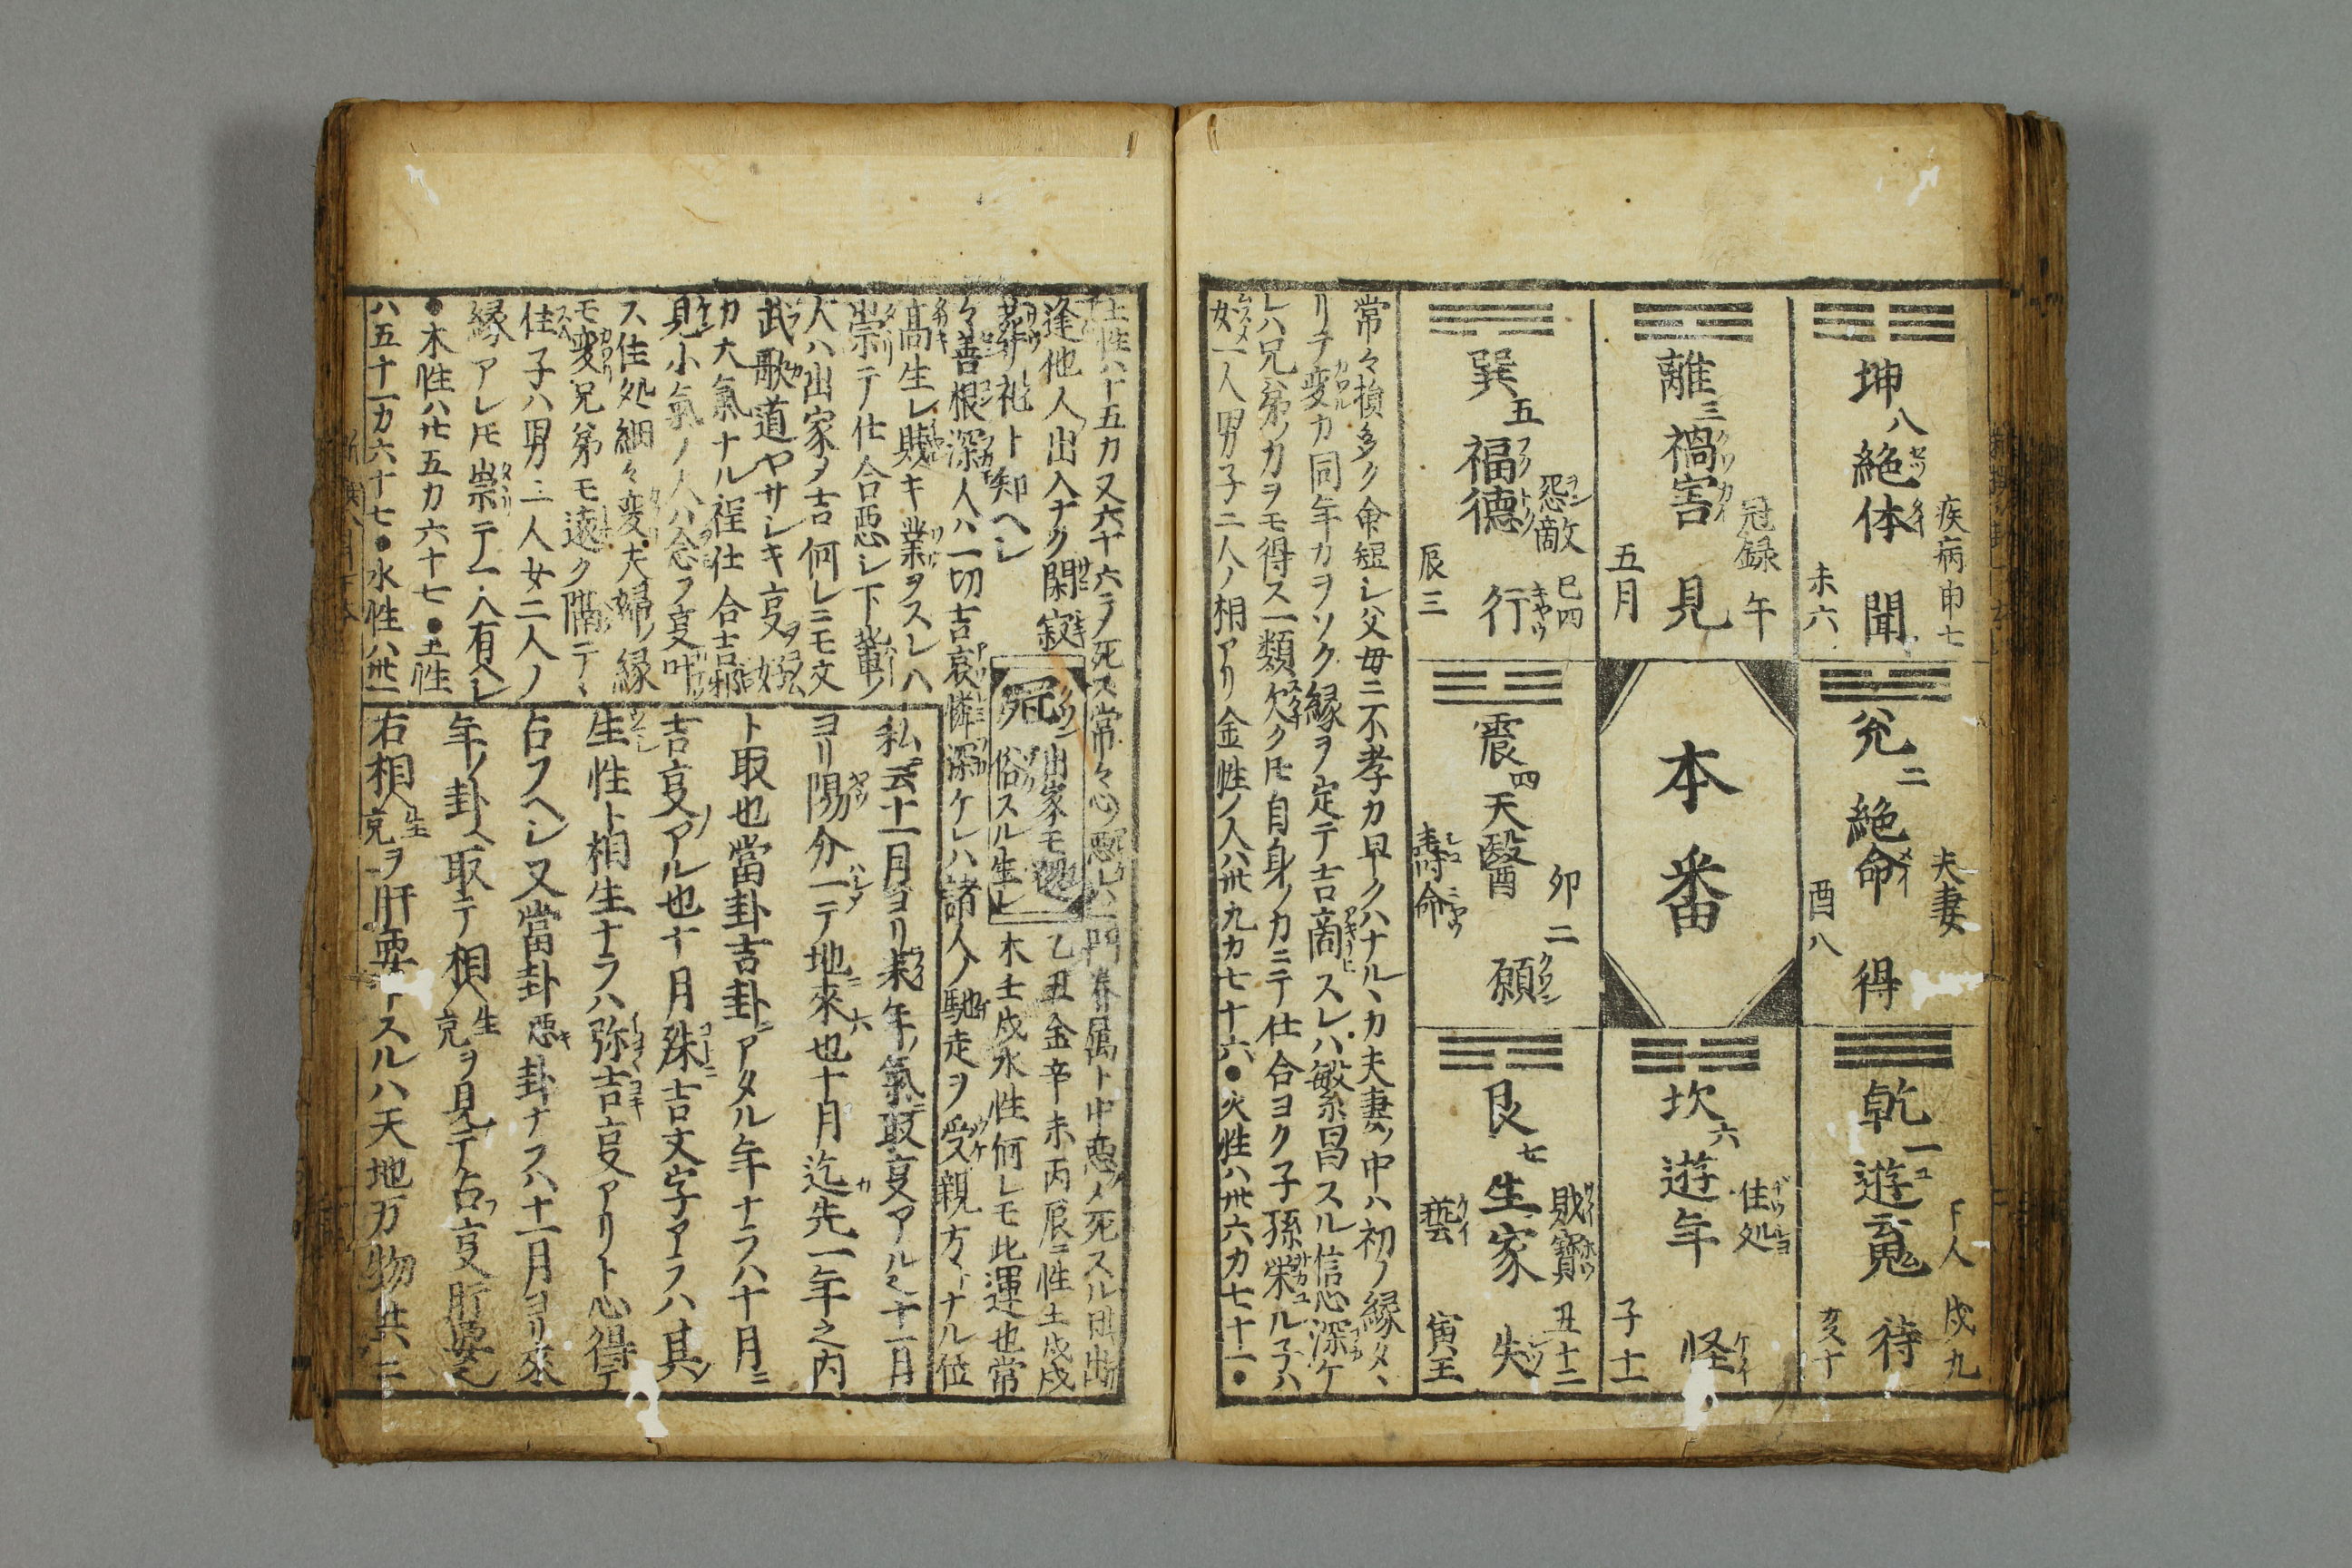 坤八絶体聞
疾病申七
未六
離三禍害見
冠録午
五月
巽五福徳行
怨敵巳四
辰三
兊二絶命得
夫妻
酉八
本番
震四天醫願
卯二
壽命
乾一遊䰟待
下人戌九
亥十
坎六遊年怪
住処
子十一
艮七生家失
財寶丑十二
藝寅正
常々損多ク命短レ父母ニ不孝カ早クハナルヽカ夫妻ノ中ハ初ノ縁タヽ
リテ変カ同年カヲソク縁ヲ定テ吉商スレハ繁昌スル信心深ケ
レハ兄弟ノカヲモ得ス一類欠ク𪜈自身ノカニテ仕合ヨク子孫栄ル子ハ
女一人男子二人ノ相アリ金性ノ人ハ卅九カ七十六●火性ハ卅六カ七十一●
土性ハ十五カ又六十六ヲ死ス常々心
逢他人出入ナク閑寂
葬礼ト知ヘシ
乙丑金辛未丙辰ニ性土戊戌
木壬戌水性何レモ此運也常
々善根深人ハ一切吉哀憐深ケレハ諸人ノ馳走ヲ受親方トナル位
高生レ賎キ業ヲスレハ
崇リテ仕合悪レ下輩ノ
人ハ出家ヲ吉何レニモ文
武歌道ヤサレキ㕝ヲ好
カ大氣ナル程仕合吉邪
見小氣ノ人ハ念フ㕝叶
ス住処細々変夫婦ノ縁
モ変兄弟モ遠ク隔テヽ
住子ハ男ニ人女二人ノ
縁アレ𪜈崇テ一人有ヘレ
●木性ハ廿五カ六十七●土性
ハ五十一カ六十七●水性ハ卅一
私云十一月ヨリ来年ノ氣取㕝アルハ十一月
ヨリ陽分一テ地ニ來也十月迄カ先一年之内
ト取也當卦吉卦ニアタル年ナラハ十月ニ
吉㕝アル也十月殊ニ吉文字アラハ其
生性ト相生ナラハ弥吉㕝アリト心得テ
占フヘレ又當卦悪キ卦ナラハ十一月ヨリ來
年ノ卦ヘ取テ相生克ヲ見テ占㕝肝要也
右相生克ヲ肝要トスルハ天地万物共ニ